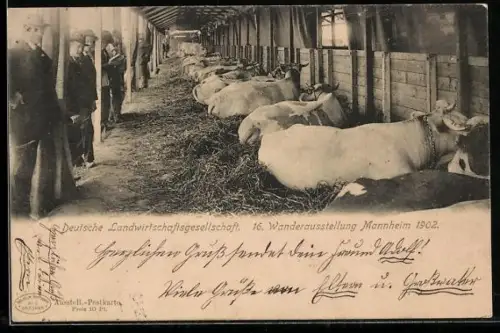 Deutsche Landwirtschaftsgesellschaft. 16. Wanderausstellung Mannheim 1902.
Herzlichen Gruß sendet Dein Freund Adolf!
Viele Grüße von Eltern u. Großvater
Ausstell.-Postkarte
Preis 10 Pf.